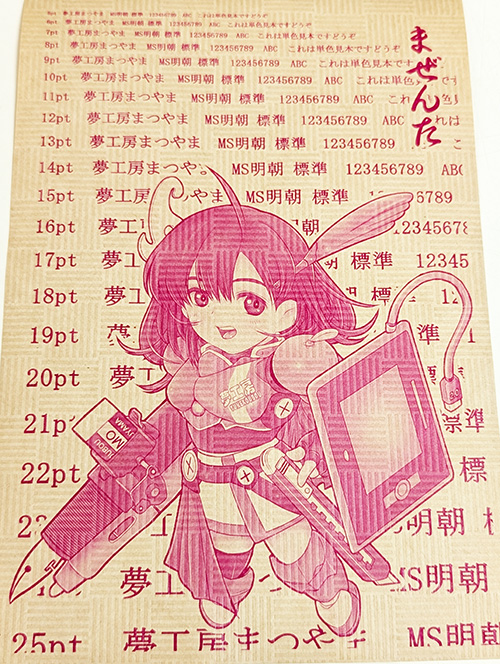 6pt 夢工房まつやま MS明朝 標準 123456789 ABC これは単色見本ですどうぞ
7pt 夢工房まつやま MS明朝 標準 123456789 ABC これは単色見本ですどうぞ
8pt 夢工房まつやま MS明朝 標準 123456789 ABC これは単色見本ですどうぞ
9pt 夢工房まつやま MS明朝 標準 123456789 ABC これは単色見本です
10pt 夢工房まつやま MS明朝 標準 123456789 ABC これは単色
11pt 夢工房まつやま MS明朝 標準 123456789 ABC これは
12pt 夢工房まつやま MS明朝 標準 123456789 ABC これは
13pt 夢工房まつやま MS明朝 標準 123456789 ABC こ
14pt 夢工房まつや MS明朝 標準 123456789 ABC
15pt 夢工房まつやま MS明朝 標準 123456789
16pt 夢工 MS明朝 12345678
17pt 夢工 明朝 標準 12345
18pt 夢工 標準 12
19pt 夢 標準 1
20pt 夢工 標準
21pt 夢 標準
22pt 夢 朝 標
夢 明朝 標
夢工 MS明朝
25pt 夢工房まつやま MS明朝
まぜんた
MO
夢工房